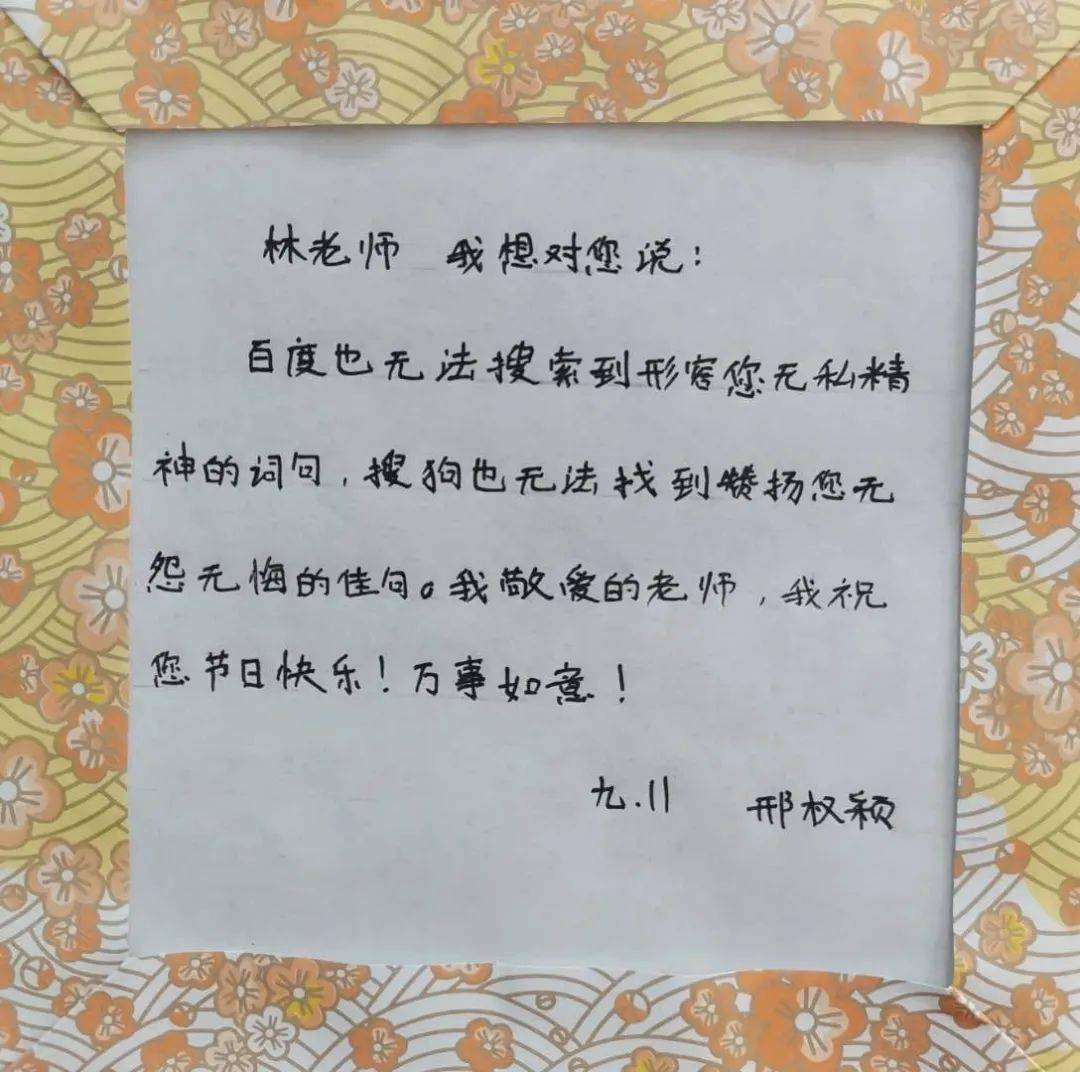 林老师 我想对您说:
百度也无法搜索到形容您无私精
神的词句,搜狗也无法找到赞扬您无
怨无悔的佳句。我敬爱的老师,我祝
您节日快乐!万事如意!
九.11 邢权颖